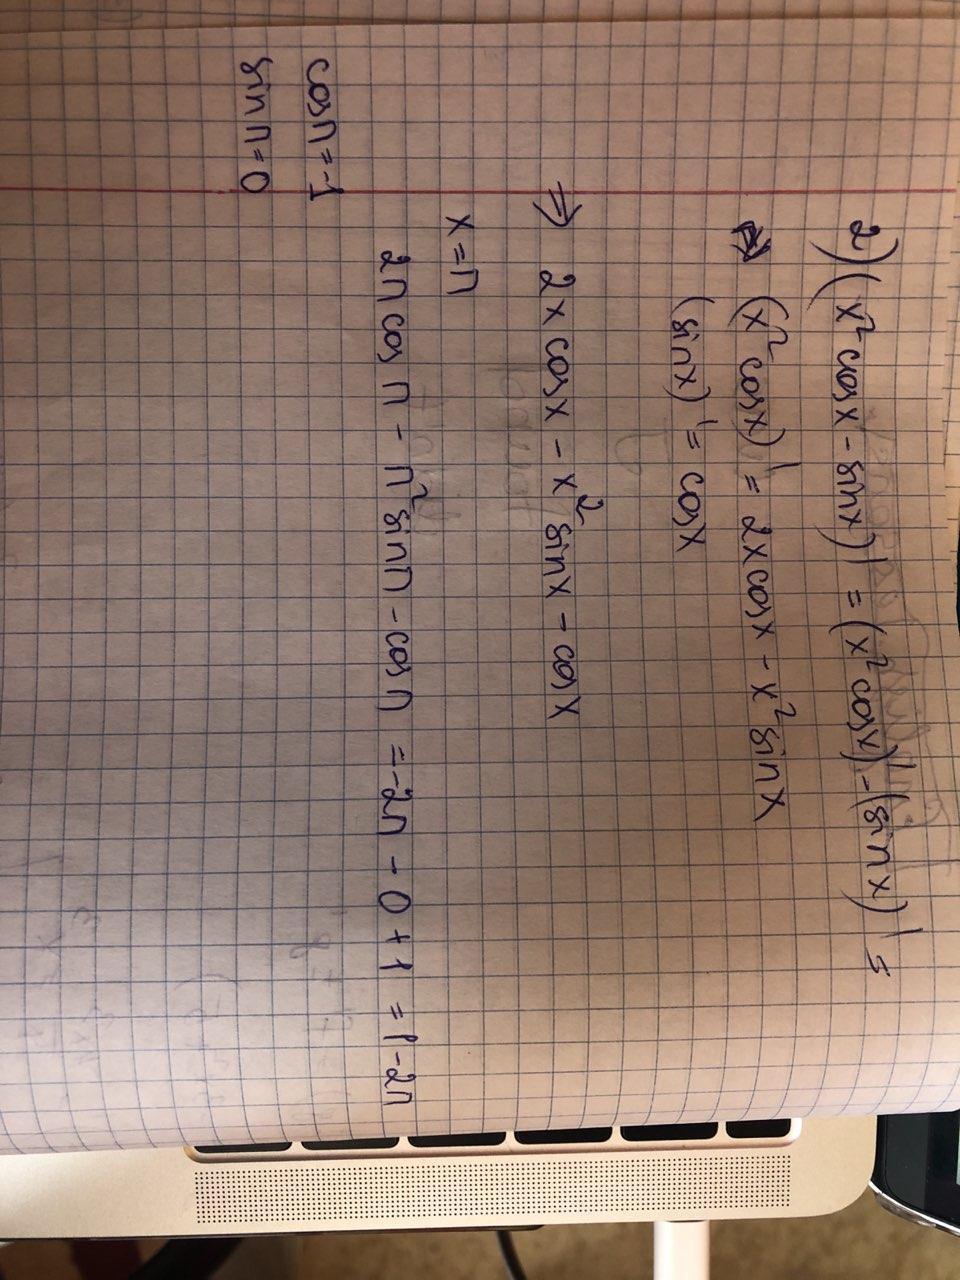 2) (x² cosx - sinx)' = (x² cosx)' - (sinx)' =
(x² cosx)' = 2x cosx - x² sinx
(sinx)' = cosx
⇒ 2x cosx - x² sinx - cosx
x = π
2π cos π - π² sinπ - cosπ = -2π - 0 + 1 = 1-2π
cosπ = -1
sinπ = 0